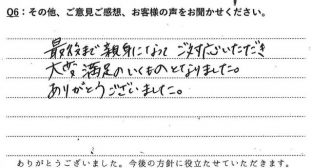 Q6：その他、ご意見ご感想、お客様の声をお聞かせください。
最後まで親身になって ご対応いただき
大変 満足のいくものとなりました。
ありがとうございました。
ありがとうございました。今後の方針に役立たせていただきます。